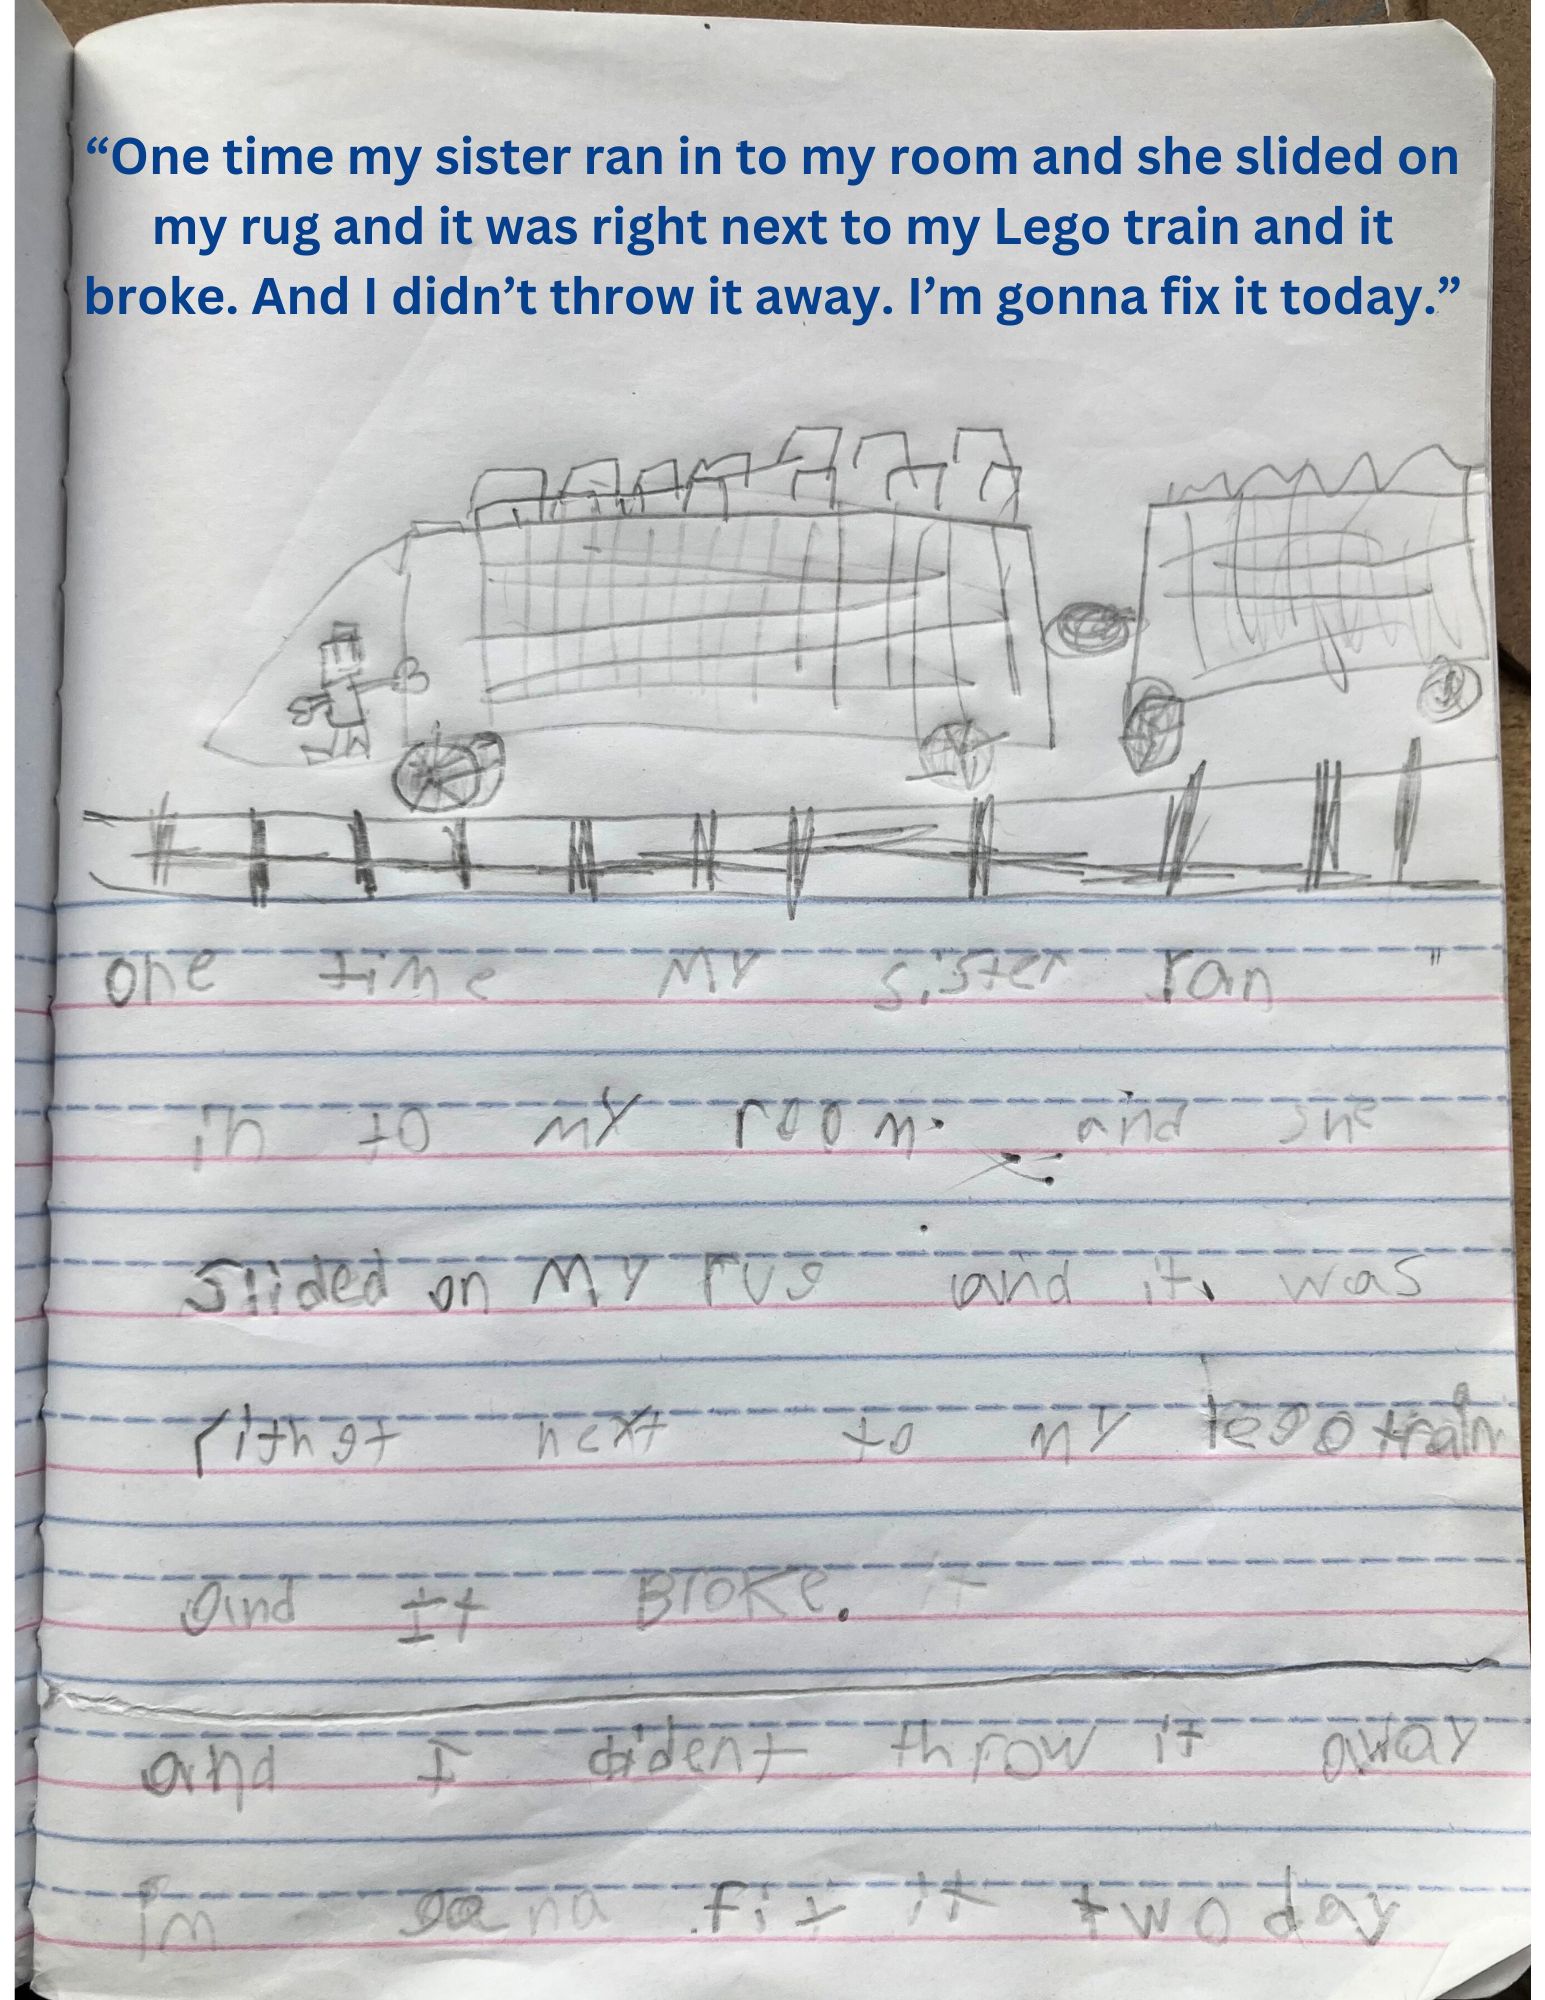 “One time my sister ran in to my room and she slided on
my rug and it was right next to my Lego train and it
broke. And I didn’t throw it away. I’m gonna fix it today.”
one time my sister ran
in to my room. and she
slided on my rug and it was
rithgt next to my lego train
and It BROKe. it
and I dident throw it away
im gana fix it two day